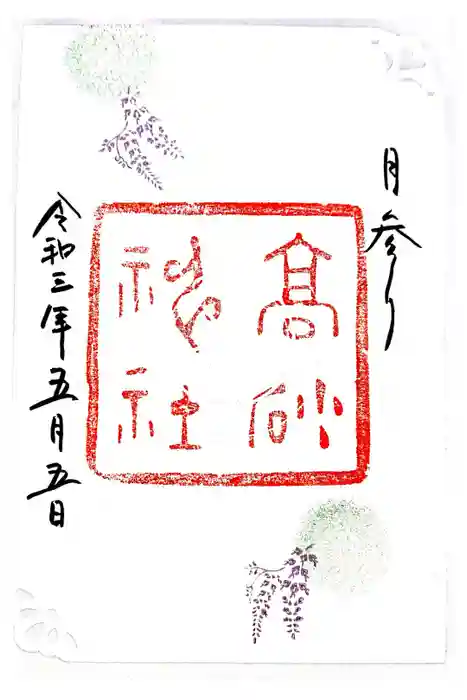 月参り
高砂
神社
令和三年五月五日